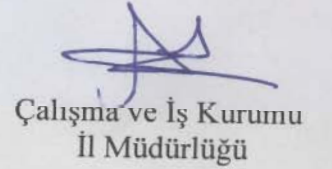 Çalışma ve İş Kurumu
İl Müdürlüğü